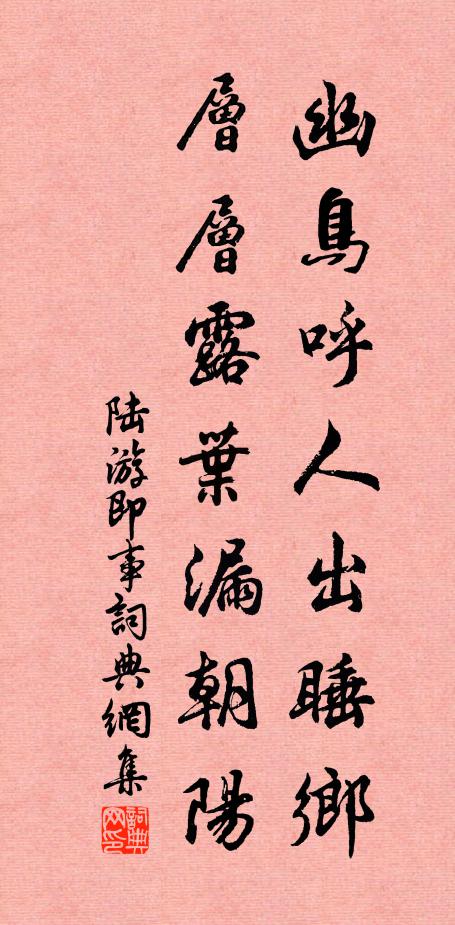 幽鳥呼人出睡鄉
層層露葉漏朝陽
陆游即事詞典網集
詞典
网印